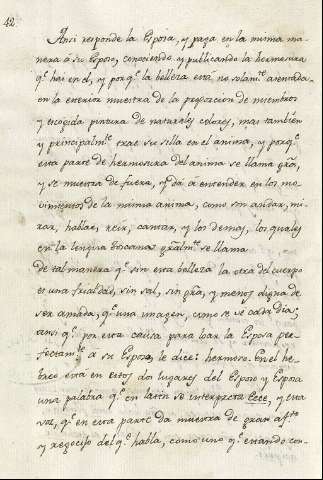 42.
Ansi responde la Esposa, y paga en la misma ma-
nera à su Esposo, conociendo y publicando la hermosura
q.e hai en el, y porq.e la belleza està no solam.te asentada
en la exterior muestra de la proporcion de miembros
y escogida pintura de naturales colores, mas tambien
y principalm.te trae su silla en el anima, y porq.e
esta parte de hermosura del anima se llama gra,
y se muestra de fuera, y da à entender en los mo-
vimientos de la misma anima, como son andar, mi-
rar, hablar, reir, cantar, y los demas, los quales
en la lengua toscana gralm.te se llama
de tal manera q.e sin esta belleza la otra del cuerpo
es una frialdad, sin sal, sin gra, y menos digna de
ser amada, q.e una imagen, como se ve cada dia;
ansi q.e por esta causa para loar la Esposa per-
fectam.te a su Esposo, le dice: hermoso. En el he-
breo està en estos dos lugares del Esposo y Esposa
una palabra q.e en latin se interpreta Ecce, y esta
voz, q.e en esta parte da muestra de gran af.to
y regocijo del q.e habla, como uno q.e estando con-